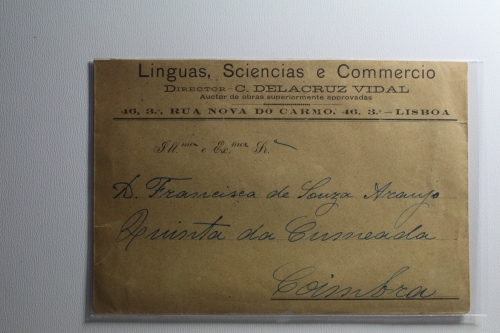 Linguas, Sciencias e Commercio
DIRECTOR-C. DELACRUZ VIDAL
Auctor de obras superiormente approvadas
46, 3.º, RUA NOVA DO CARMO, 46, 3.º-LISBOA
Ill.mos e Ex.mos Sr.
D. Francisca de Souza Araujo
Quinta da Cumeada
Coimbra